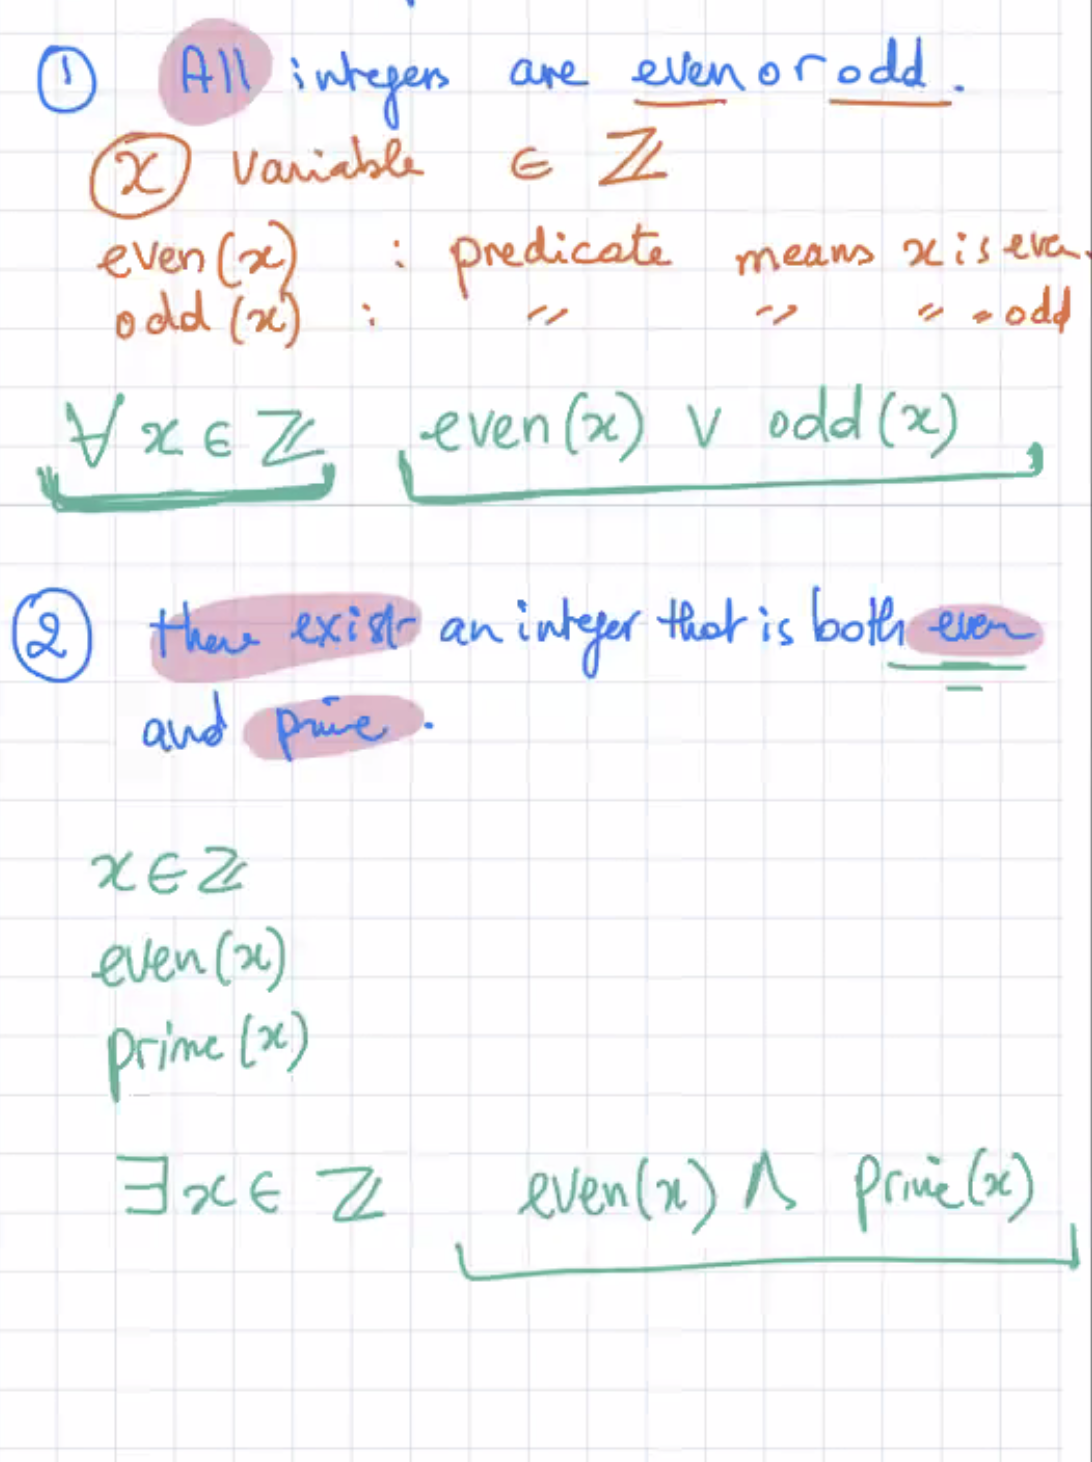 ① All integers are even or odd.
x variable ∈ ℤ
even(x) : predicate means x is even
odd(x) : " " " " odd
∀ x ∈ ℤ even(x) ∨ odd(x)
② there exist an integer that is both even
and prime.
x ∈ ℤ
even(x)
prime(x)
∃ x ∈ ℤ even(x) ∧ prime(x)